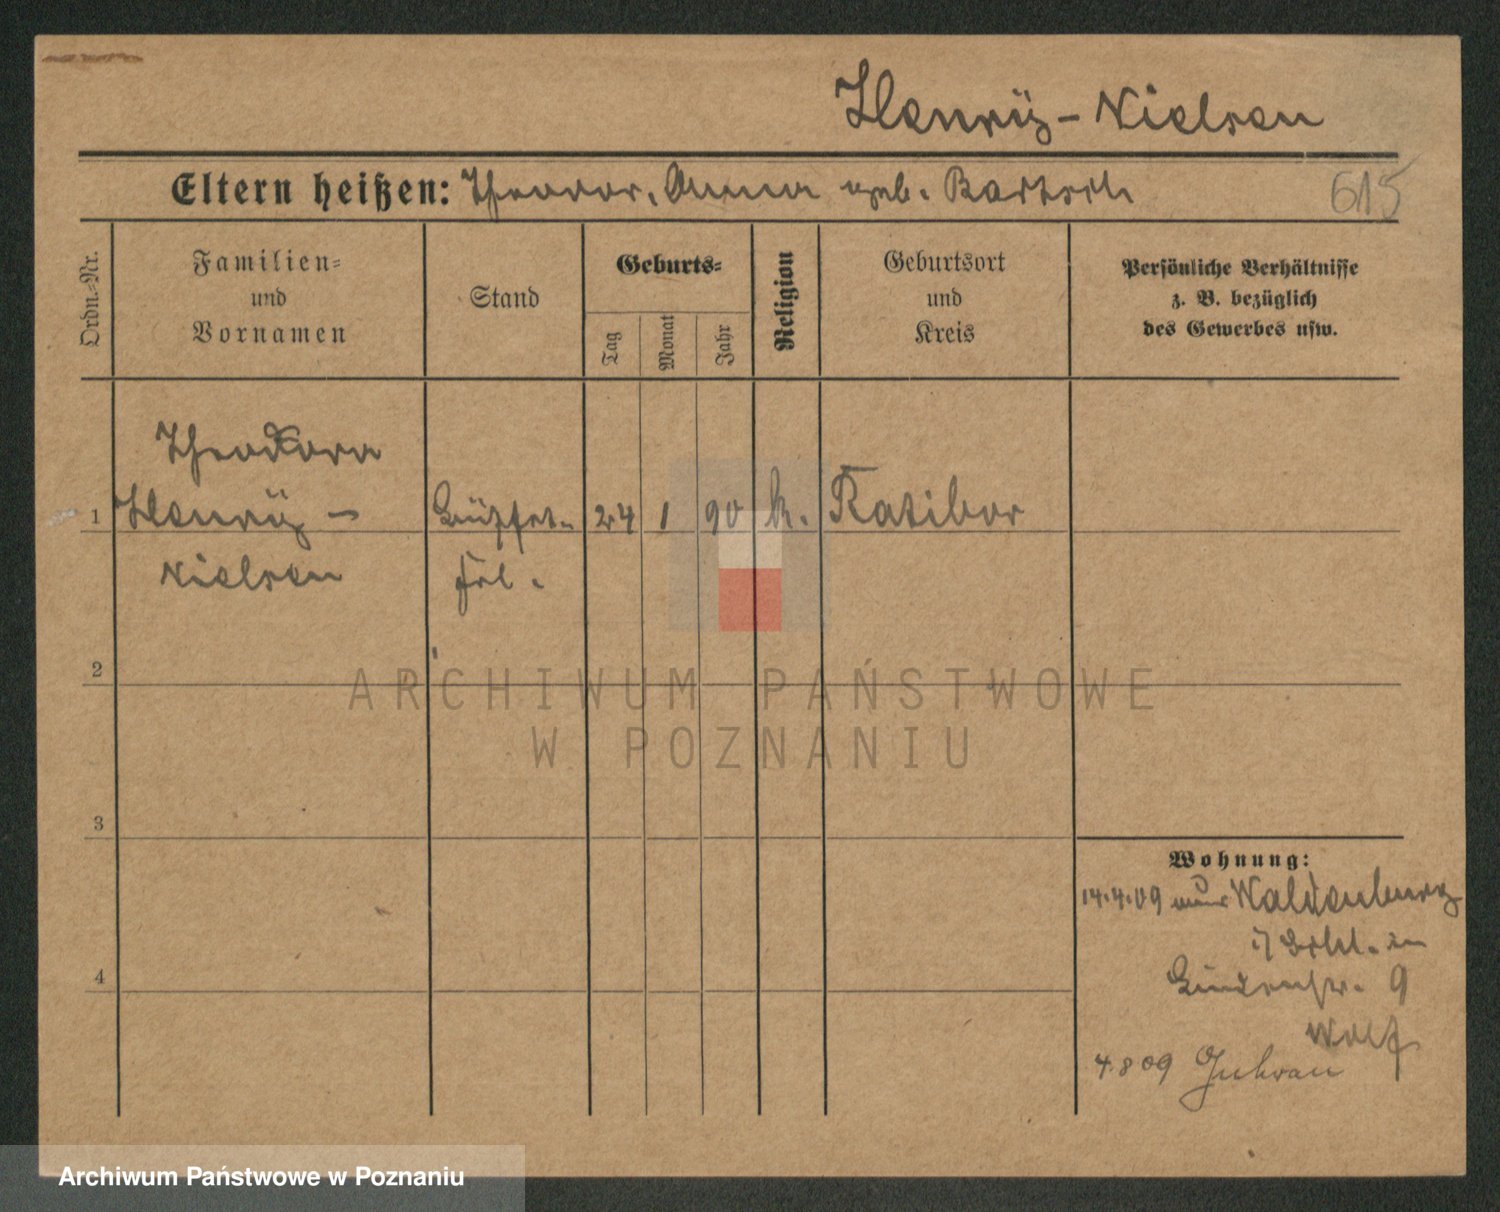 Henrÿ-Nielsen
Eltern heißen: Theodor, Anna geb. Bartsch
615
Ordn.-Nr.
Familien-
und
Vornamen
Stand
Geburts-
Tag
Monat
Jahr
Religion
Geburtsort
und
Kreis
Persönliche Verhältnisse
z. B. bezüglich
des Gewerbes usw.
Theodora
1 Henrÿ- Büffet- 24 1 90 k. Ratibor
Nielsen frl.
2
ARCHIWUM PAŃSTWOWE
W POZNANIU
3
Wohnung:
14.4.09 aus Waldenburg
i/ Schl. in
Lindenstr. 9
Wolf
4
4.8 09 Guhrau
Archiwum Państwowe w Poznaniu